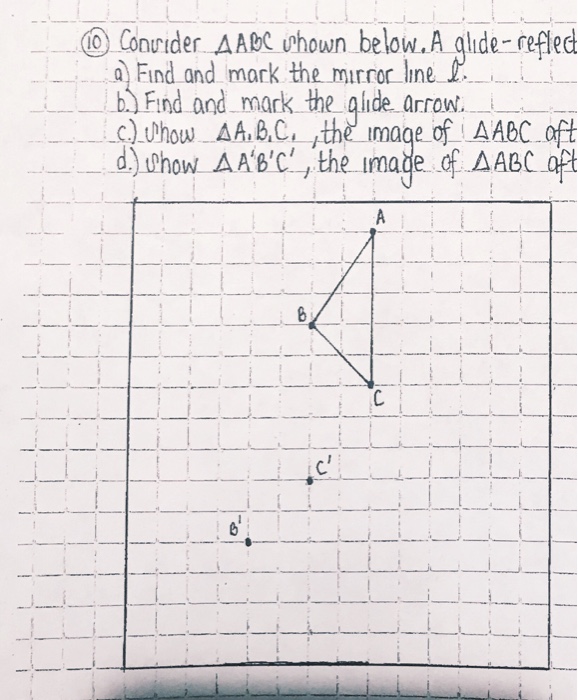 ⑩ Consider △ABC shown below. A glide-reflect
a) Find and mark the mirror line l.
b.) Find and mark the glide arrow.
c.) Show △A₁B₁C₁, the image of △ABC aft
d.) Show △A'B'C', the image of △ABC aft
A
B
C
C'
B'